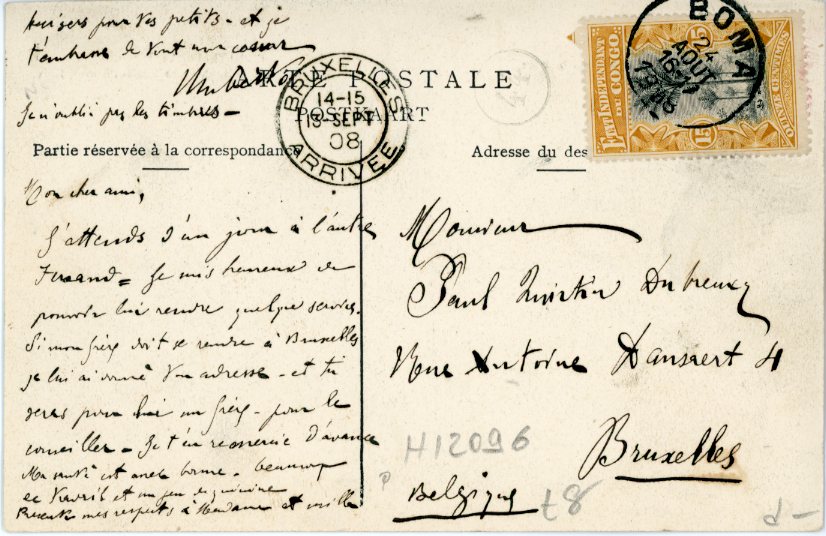 baisers pour tes petits - et je
t'embrasse de tout mon coeur
CARTE POSTALE
Je n'oublie pas les timbres -
POSTKAART
Partie réservée à la correspondance
Adresse du des
BRUXELLES
14-15
13 SEPT
08
ARRIVÉE
BOMA
24
AOUT
ETAT INDÉPENDANT
DU CONGO
15
QUINZE CENTIMES
Mon cher ami,
J'attends d'un jour à l'autre
Fernand = Je suis heureux de
pouvoir lui rendre quelque service.
Si mon frère doit se rendre à Bruxelles
je lui ai donné ton adresse - et tu
seras pour lui un frère - pour le
conseiller - Je t'en remercie d'avance
Ma santé est assez bonne - beaucoup
de travail et un peu de quinine
Présente mes respects à Madame et mille
Monsieur
Paul Dubreucq
Rue Antoine Dansaert 4
Bruxelles
Belgique
H12096
t8
d-